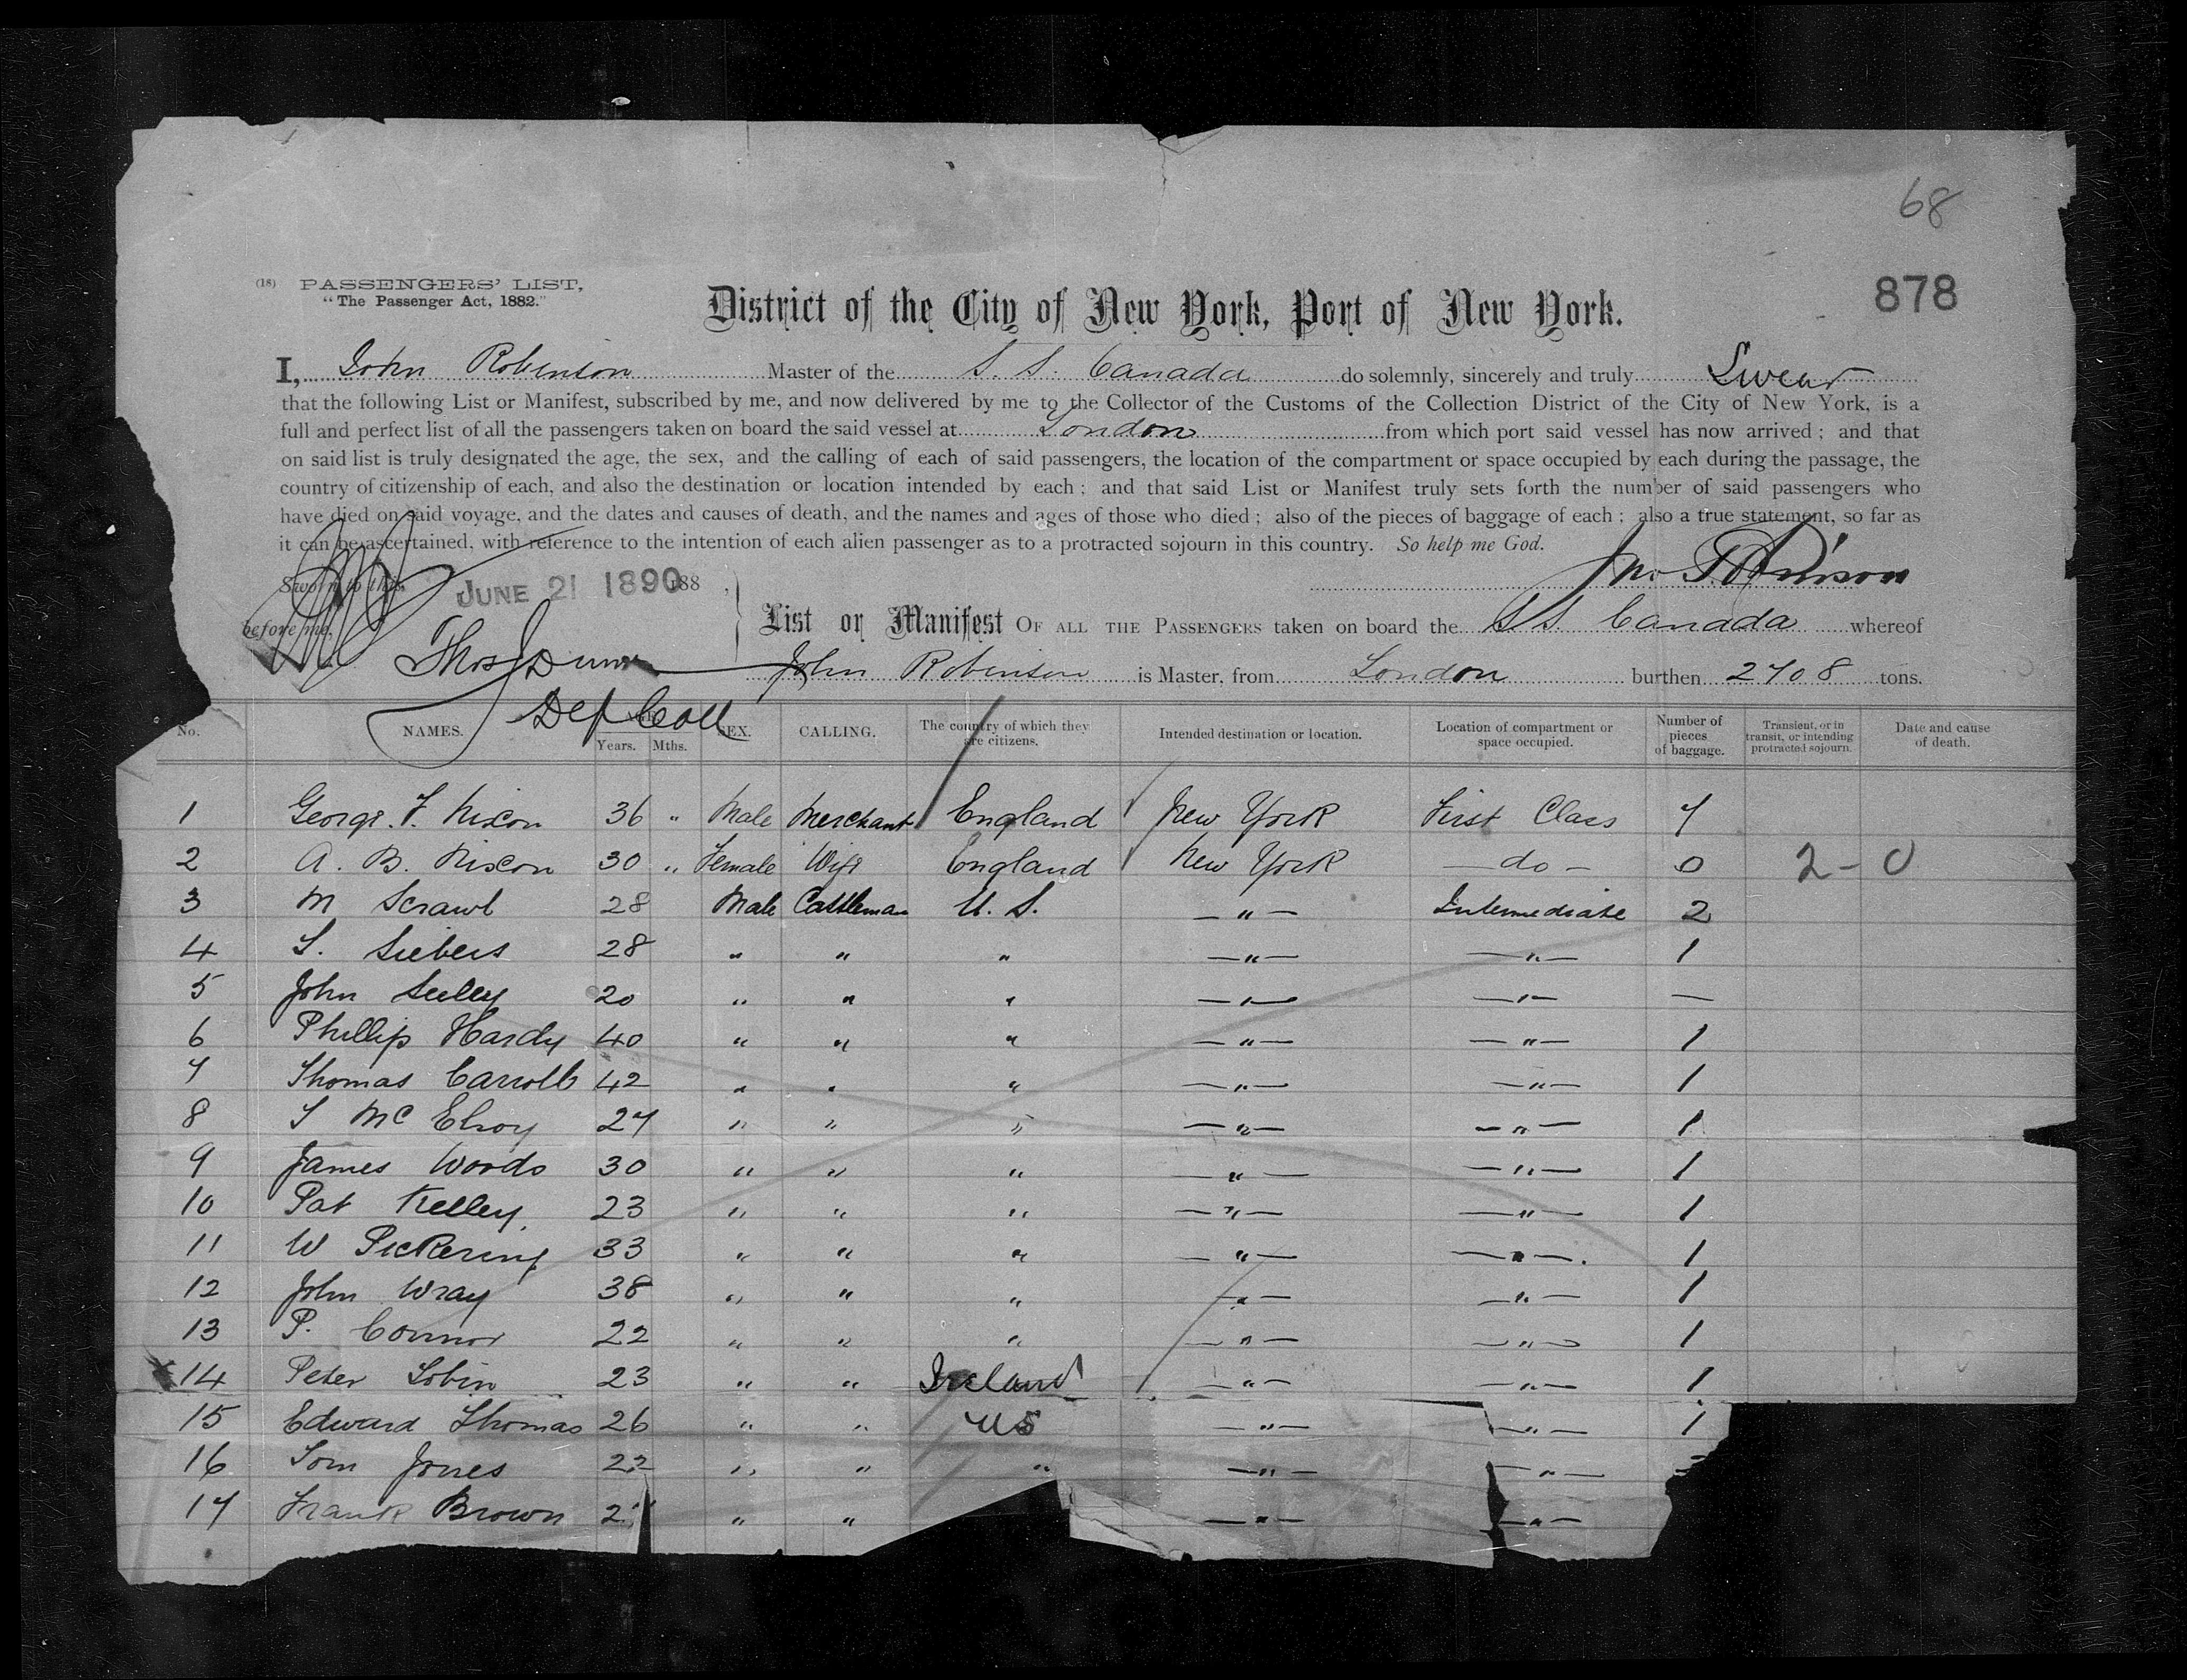 68
878
(18) PASSENGERS' LIST,
"The Passenger Act, 1882."
District of the City of New York, Port of New York.
I, John Robinson Master of the S. S. Canada do solemnly, sincerely and truly Swear
that the following List or Manifest, subscribed by me, and now delivered by me to the Collector of the Customs of the Collection District of the City of New York, is a
full and perfect list of all the passengers taken on board the said vessel at London from which port said vessel has now arrived; and that
on said list is truly designated the age, the sex, and the calling of each of said passengers, the location of the compartment or space occupied by each during the passage, the
country of citizenship of each, and also the destination or location intended by each; and that said List or Manifest truly sets forth the number of said passengers who
have died on said voyage, and the dates and causes of death, and the names and ages of those who died; also of the pieces of baggage of each; also a true statement, so far as
it can be ascertained, with reference to the intention of each alien passenger as to a protracted sojourn in this country. So help me God.
Sworn to this JUNE 21 1890 188 , Jno Robinson
before me, List or Manifest OF ALL THE PASSENGERS taken on board the S.S. Canada whereof
Thos J Dunn John Robinson is Master, from London burthen 2708 tons.
Dep Coll
No. NAMES. AGE. Years. Mths. SEX. CALLING. The country of which they are citizens. Intended destination or location. Location of compartment or space occupied. Number of pieces of baggage. Transient, or in transit, or intending protracted sojourn. Date and cause of death.
1 George. F. Nixon 36 " Male Merchant England New York First Class 7
2 A. B. Nixon 30 " Female Wife England New York — do — 0 2 - 0
3 M Scrawl 28 Male Cattleman U. S. — " — Intermediate 2
4 S. Siebers 28 " " " — " — — " — 1
5 John Seeley 20 " " " — " — — " — —
6 Phillip Hardy 40 " " " — " — — " — 1
7 Thomas Carroll 42 " " " — " — — " — 1
8 J Mc Elroy 27 " " " — " — — " — 1
9 James Woods 30 " " " — " — — " — 1
10 Pat Kelley 23 " " " — " — — " — 1
11 W Pickering 33 " " " — " — — " — 1
12 John Wray 38 " " " — " — — " — 1
13 P. Connor 22 " " " — " — — " — 1
14 Peter Tobin 23 " " Ireland — " — — " — 1
15 Edward Thomas 26 " " US — " — — " — 1
16 Tom Jones 22 " " " — " — — " —
17 Frank Brown " " — " — — " —